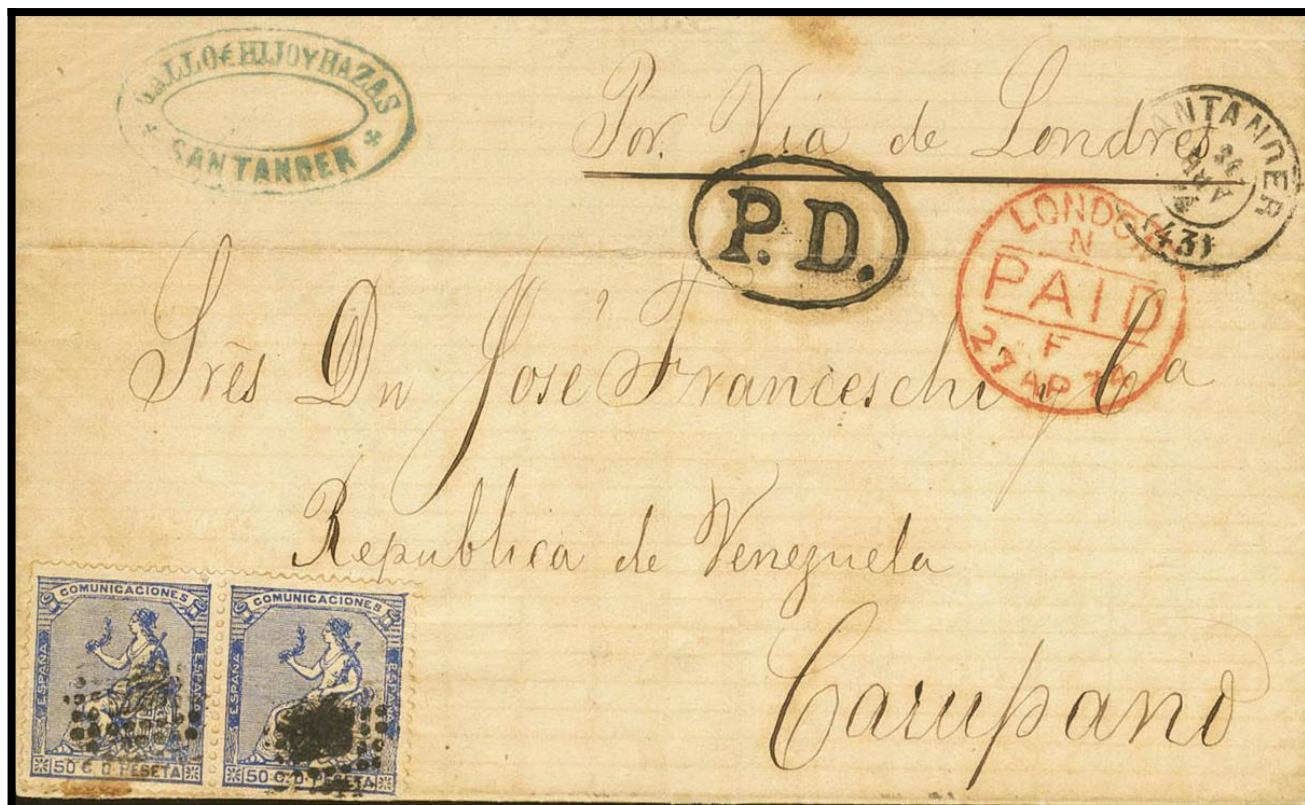 GALLO É HIJO Y HAZAS
SANTANDER
Por Via de Londres
SANTANDER
ABR
(43)
P. D.
LONDON
N
PAID
F
27 AP 74
Srēs Dn José Franceschi y Cª
Republica de Venezuela
Carupano
COMUNICACIONES
ESPAÑA
ESPAÑA
50 C. D. PESETA
COMUNICACIONES
ESPAÑA
ESPAÑA
50 C. D. PESETA